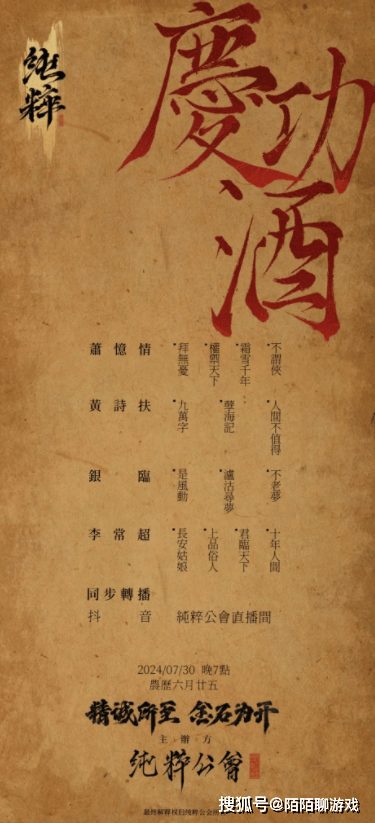 純粹
慶功酒
蕭憶情
不謂俠
霜雪千年
拜無憂
黃詩扶
人間不值得
孽海記
九萬字
銀臨
不老夢
瀘沽尋夢
是風動
李常超
十年人間
君臨天下
上品俗人
長安姑娘
同步轉播
抖音 純粹公會直播間
2024/07/30 晚7點
農歷六月廿五
精诚所至 金石为开
主辦方
純粹公會
搜狐号@陌陌聊游戏